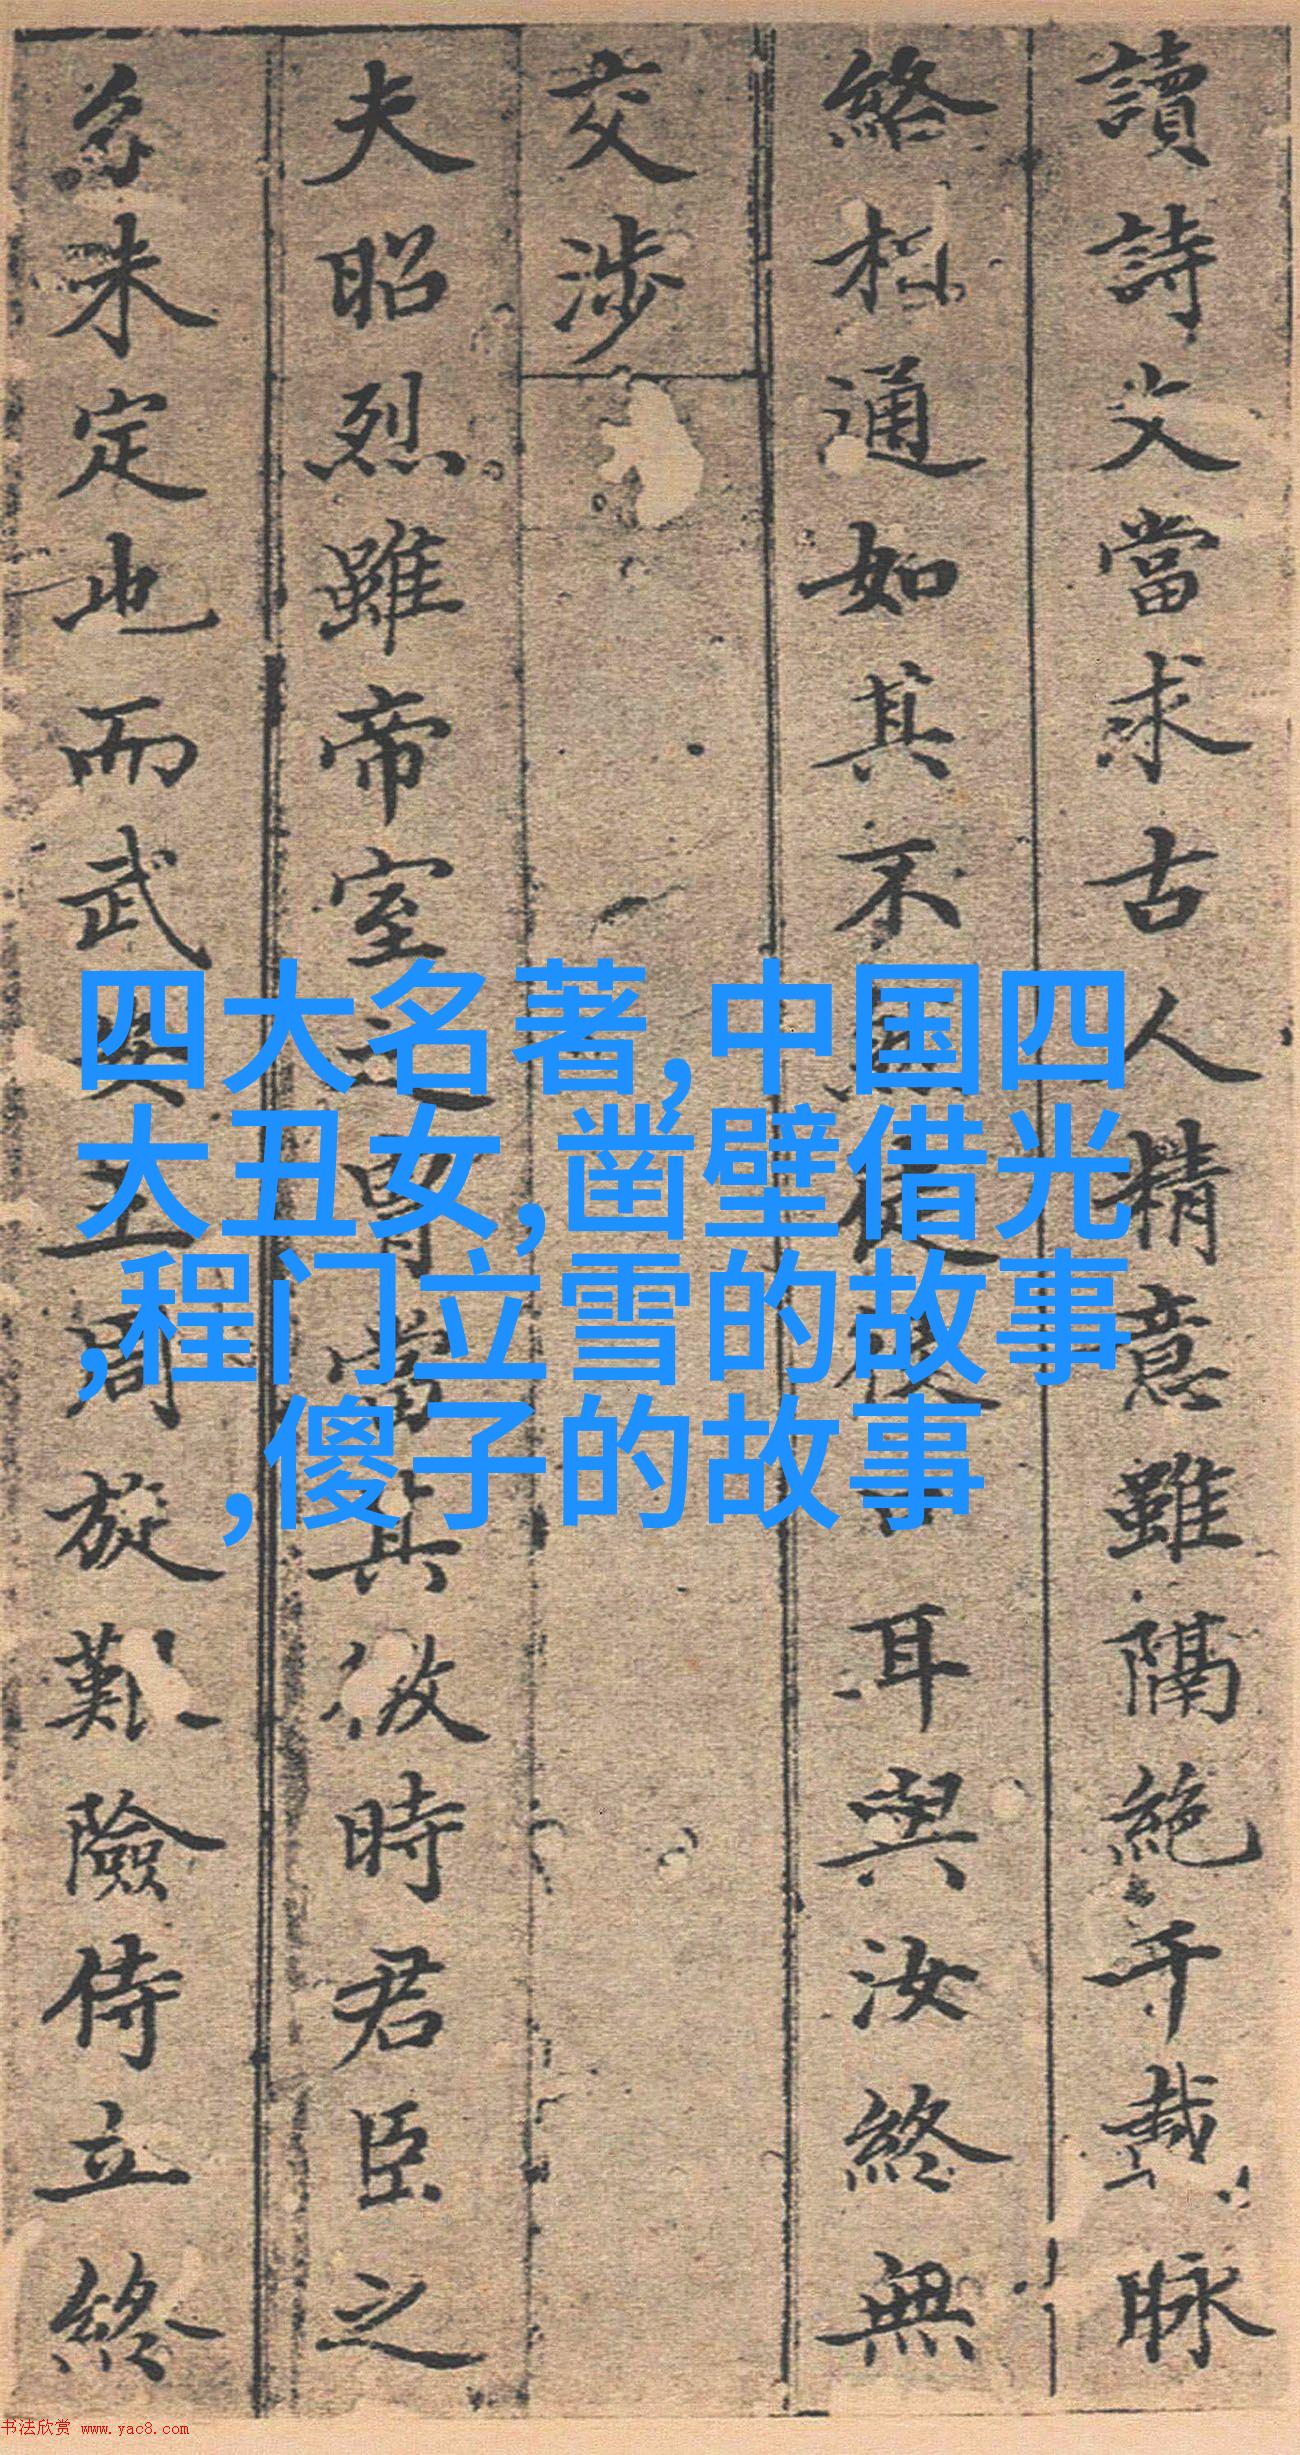 讀詩文當求古人精意雖隔絶千載脉
絡相通如其不 耳與汝終無
交涉
夫昭烈雖帝室之胄當其 時君臣之
分未定也而武安王周旋艱險侍立終
四大名著,中国四
大丑女,凿壁借光
,程门立雪的故事
,傻子的故事
书法欣赏 www.yac8.com